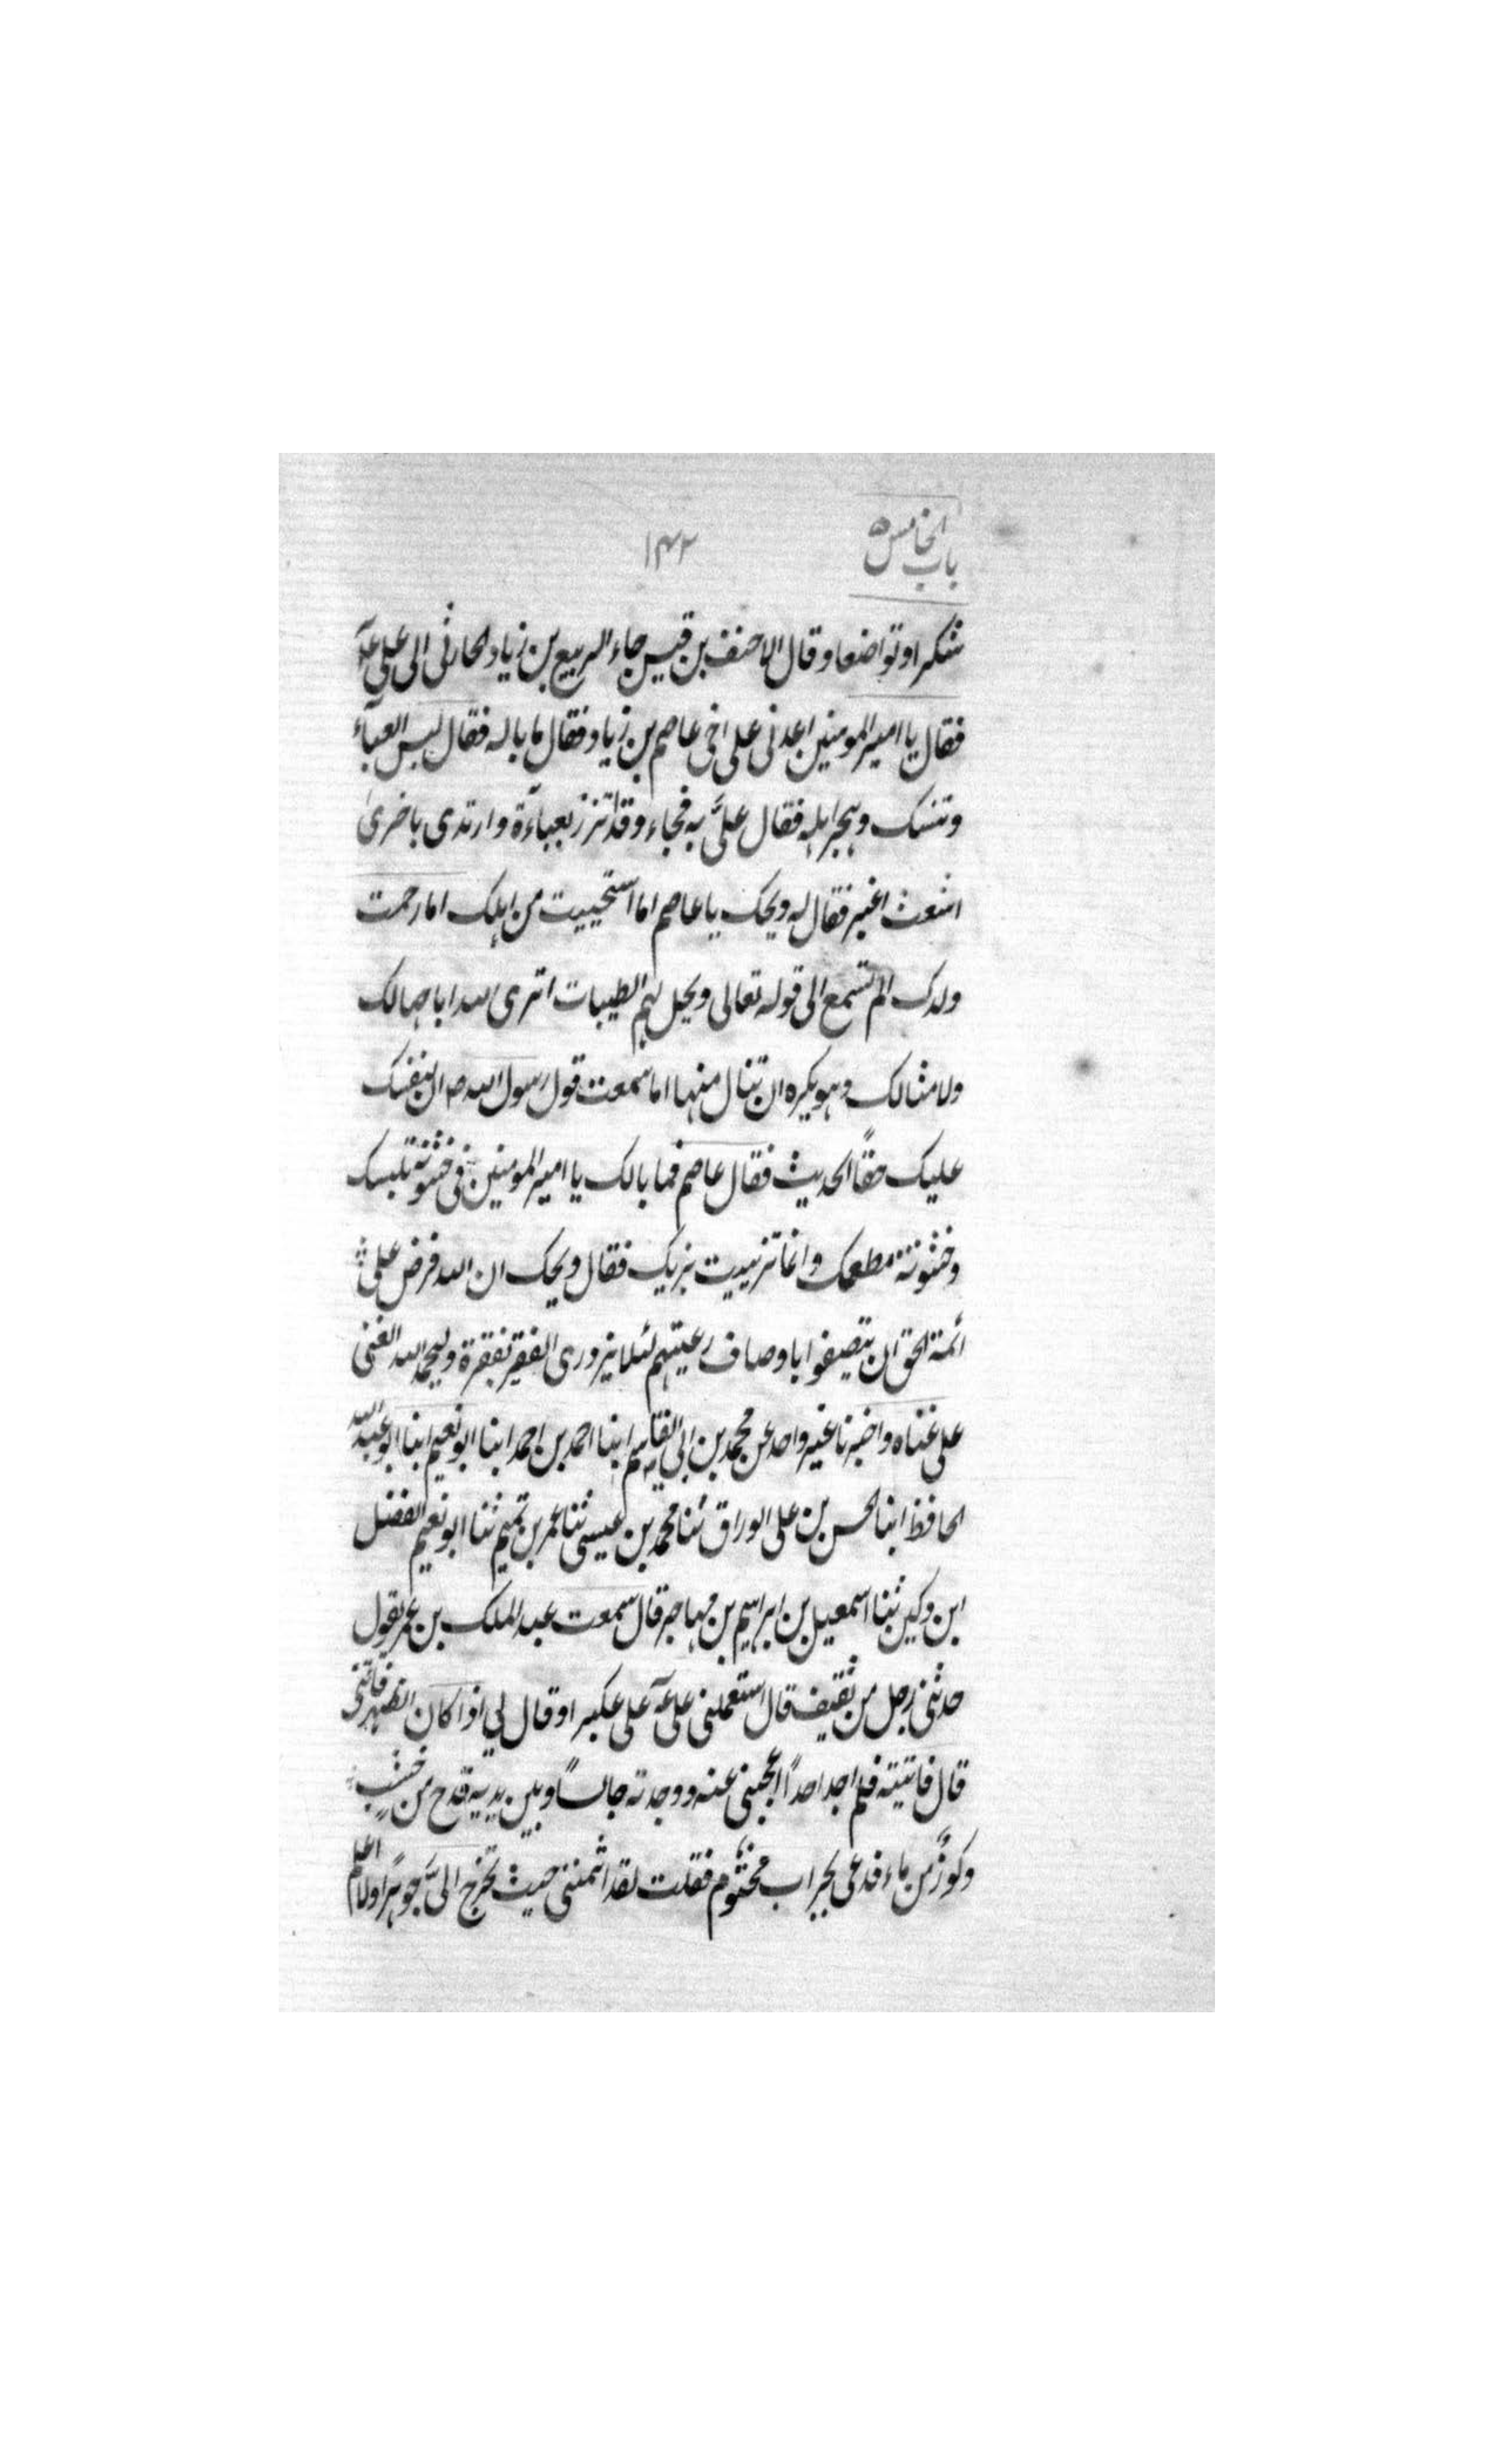 باب الخامس ١٣٢
شكرا وتواضعا وقال الاحنف بن قيس جاء الربيع بن زياد الحارثى الى على عۤ
فقال يا امير المومنين اعدنى على اخى عاصم بن زياد فقال ما باله فقال لبس العباء
وتنسك وهجر اهله فقال علىَّ به فجاء وقد اتزر بعباءة وارتدى باخرى
اشعث اغبر فقال له ويحك يا عاصم اما استحييت من اهلك اما رحمت
ولدك الم تسمع الى قوله تعالى ويحل لهم الطيبات اترى الله اباحها لك
ولامثالك وهو يكره ان تنال منها اما سمعت قول رسول الله ص ان لنفسك
عليك حقاً الحديث فقال عاصم فما بالك يا امير المومنين فى خشونة ملبسك
وخشونة مطعمك وانما تزينت بزيك فقال ويحك ان الله فرض على
ائمة الحق ان يتصفوا باوصاف رعيتهم لئلا يزورى الفقير بفقره وليحمد الله الغنى
على غناه واخبرنا غير واحد عن محمد بن ابى القاسم ابنا احمد بن احمد ابنا ابو نعيم ابنا ابو عبد الله
الحافظ ابنا الحسن بن على الوراق ثنا محمد بن عيسى ثنا عمر بن تميم ثنا ابو نعيم الفضل
ابن وكين ثنا اسمعيل بن ابراهيم بن مهاجر قال سمعت عبد الملك بن عمر يقول
حدثنى رجل من ثقيف قال استعملنى على عۤ على عكبرا وقال لي اذا كان الظهر فأتنى
قال فاتيته فلم اجد احداً يحجبنى عنه ووجدته جالساً وبين يديه قدح من خشب
وكوزٌ من ماء فدعى بجراب مختوم فقلت لقد ائتمننى حيث تخرج الىَّ جوهرًا ولا اعلم